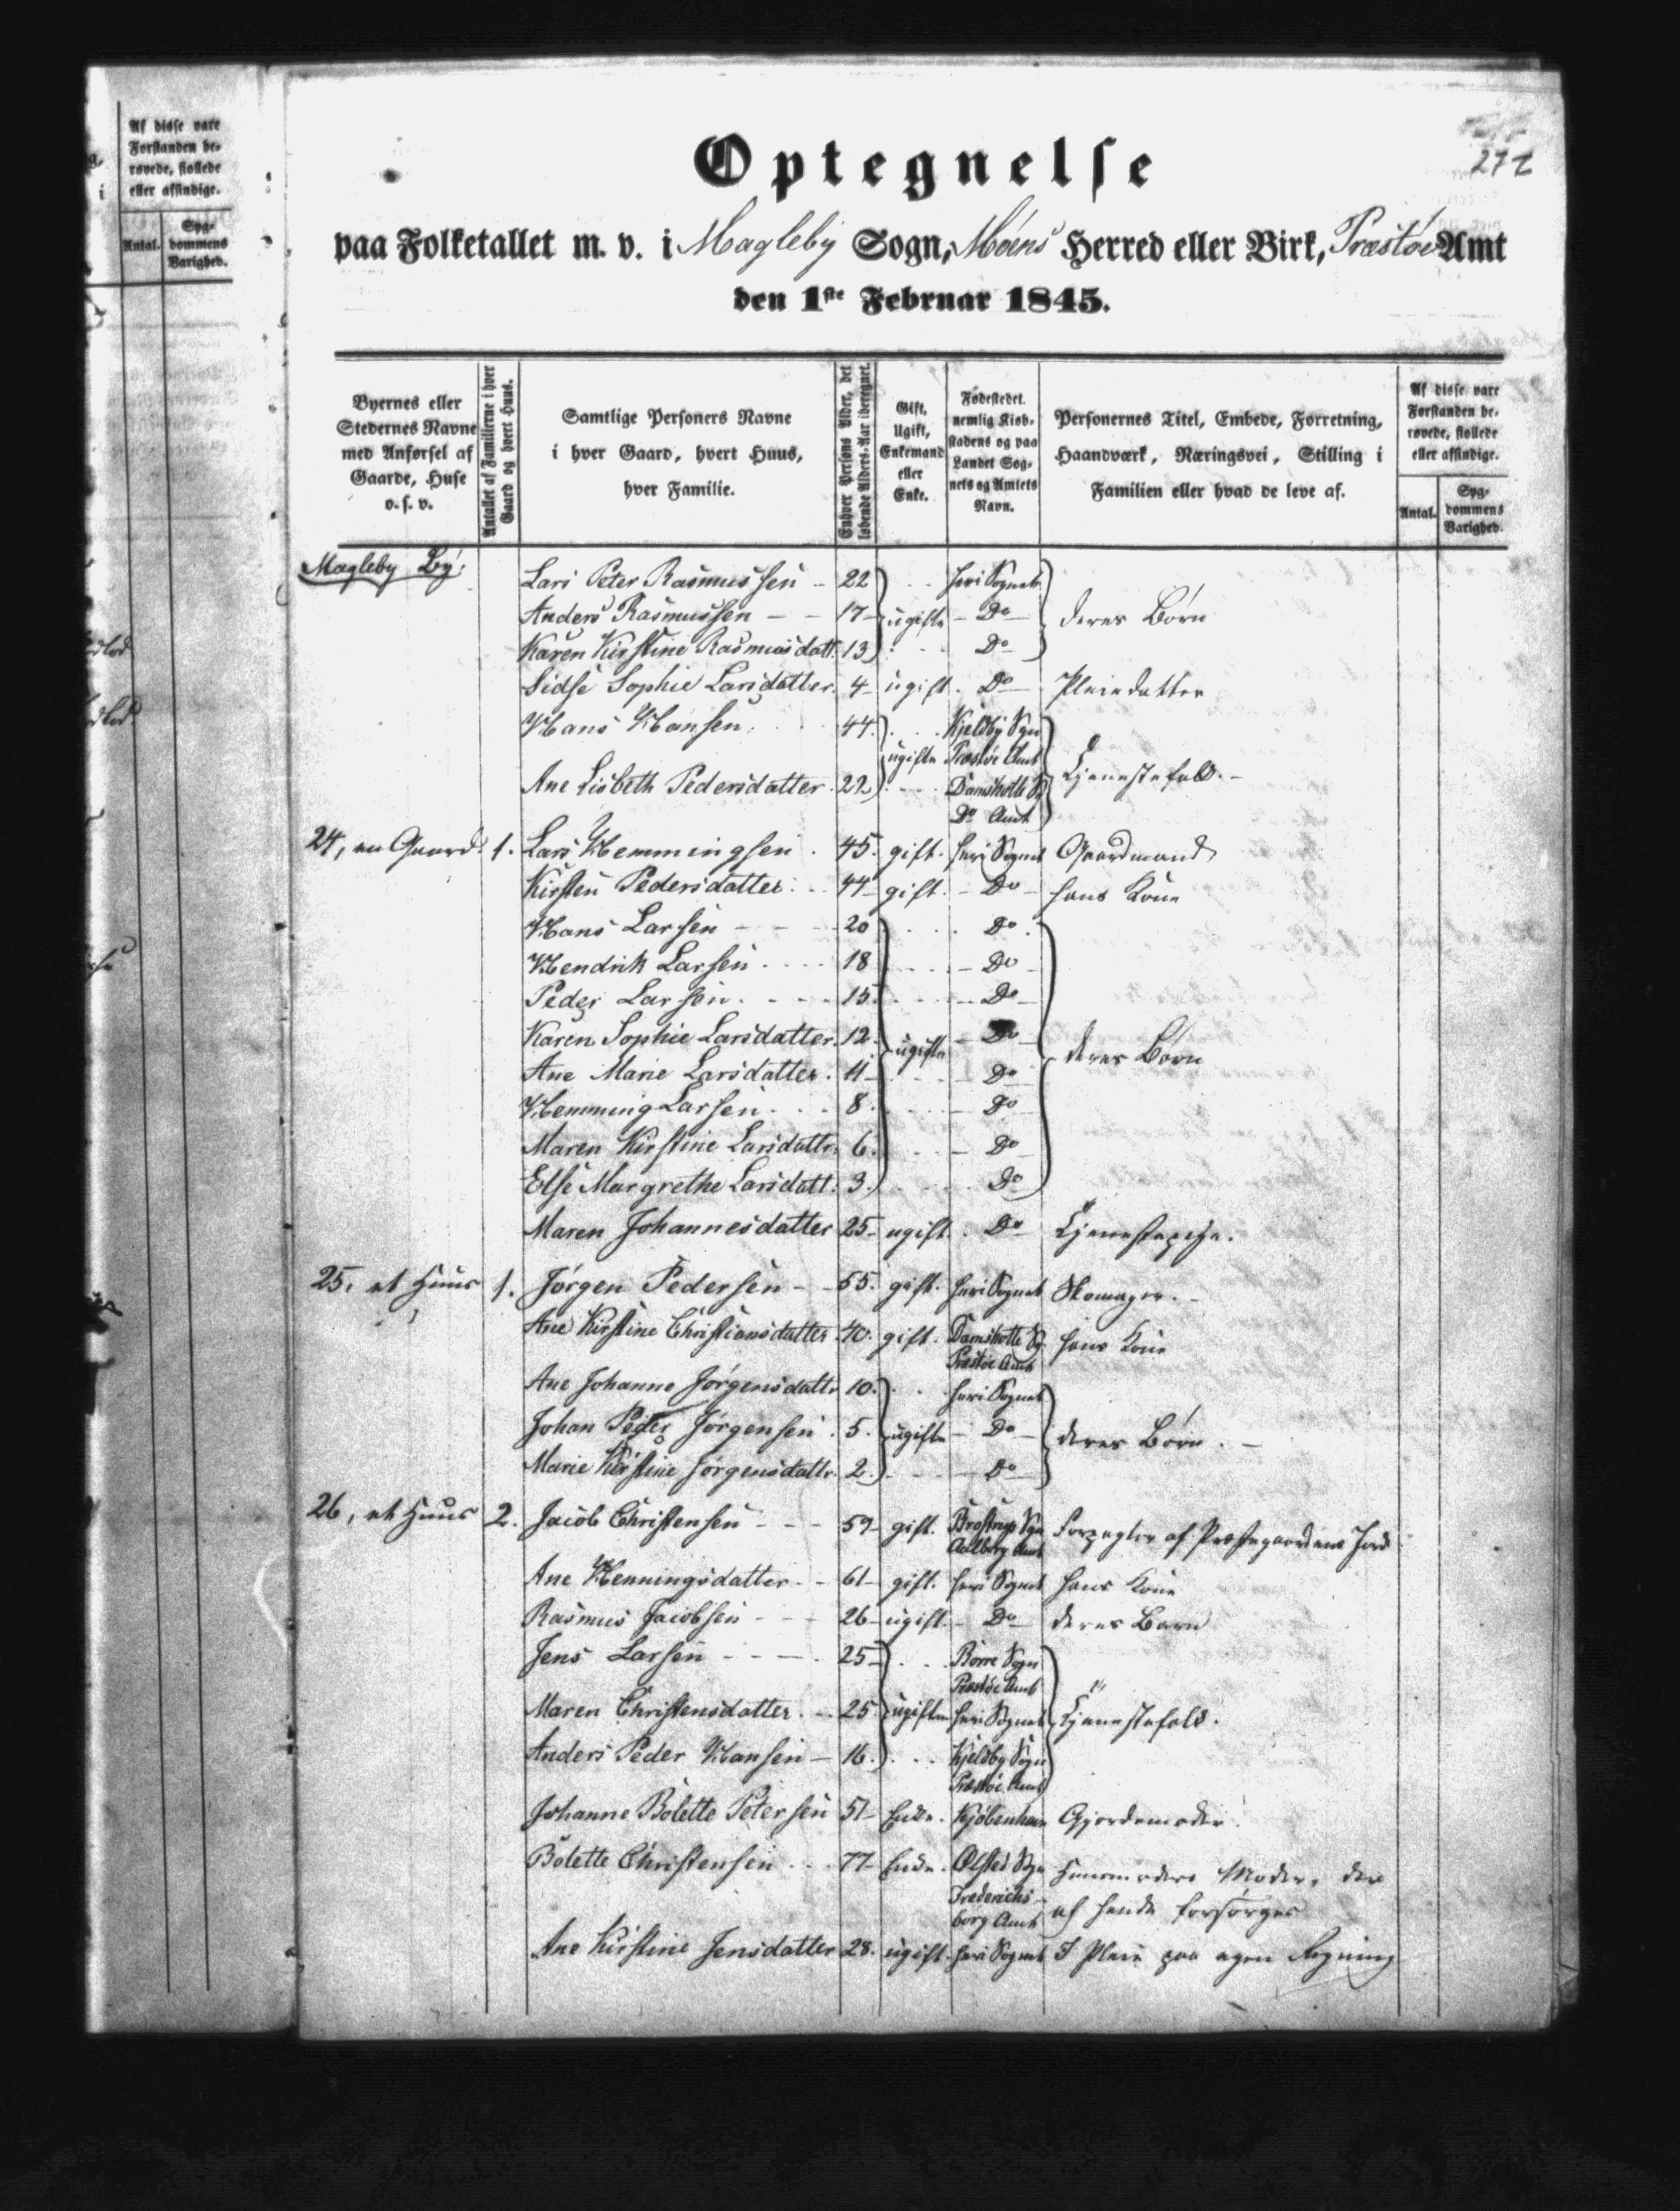 Af disse vare
Forstanden be-
røvede, fiollede
eller afsindige.
Antal.
Syg-
dommens
Varighed.
272
Optegnelse
paa Folketallet m. v. i Magleby Sogn, Møens Herred eller Birk, Præstøe Amt
den 1ste Februar 1845.
Byernes eller
Stedernes Navne
med Anførsel af
Gaarde, Huse
o. s. v.
Antallet af Familierne i hver
Gaard og hvert Huus.
Samtlige Personers Navne
i hver Gaard, hvert Huus,
hver Familie.
Enhver Persons Alder, det
løbende Alders-Aar iberegnet.
Gift,
Ugift,
Enkemand
eller
Enke.
Fødestedet.
nemlig Kiøb-
stadens og paa
Landet Sog-
nets og Amtets
Navn.
Personernes Titel, Embede, Forretning,
Haandværk, Næringsvei, Stilling i
Familien eller hvad de leve af.
Af disse vare
Forstanden be-
røvede, fiollede
eller afsindige.
Antal.
Syg-
dommens
Varighed.
Magleby By:
Lars Peter Rasmussen 22 heri Sognet
Anders Rasmussen 17 ugifte Do deres Børn
Karen Kirstine Rasmusdatt. 13 Do
Sidse Sophie Larsdatter. 4 ugift. Do Pleiedatter
Hans Hansen. 44. Kjeldby Sgn
ugifte Præstøe Amt
Ane Lisbeth Pedersdatter 22 Damsholte Sg Tjenestefolk.
Do Amt
24, en Gaard. 1. Lars Hemmingsen 45. gift. heri Sognet Gaardmand
Kirsten Pedersdatter. 44 gift. Do hans Kone
Hans Larsen 20 Do
Hendrik Larsen 18 Do
Peder Larsen. 15. Do
Karen Sophie Larsdatter. 12. ugifte Do deres Børn
Ane Marie Larsdatter. 11 Do
Hemming Larsen. 8. Do
Maren Kirstine Larsdattr. 6. Do
Else Margrethe Larsdatt. 3. Do
Maren Johannesdatter 25 ugift. Do Tjenestepige.
25, et Huus 1. Jørgen Pedersen 55. gift. heri Sognet Skomager.
Ane Kirstine Christiansdatter 40. gift. Damsholte Sg. hans Kone
Præstøe Amt
Ane Johanne Jørgensdattr 10. heri Sognet
Johan Peder Jørgensen. 5. ugifte Do deres Børn.
Marie Kirstine Jørgensdattr. 2. Do
26, et Huus 2. Jacob Christensen 59 gift. Sgn Forpagter af Præstegaardens Jord
Aalborg Amt
Ane Henningsdatter. 61 gift. heri Sognet hans Kone
Rasmus Jacobsen 26 ugift. Do deres Barn
Jens Larsen 25 Borre Sogn
Præstøe Amt
Maren Christensdatter. 25 ugifte heri Sognet Tjenestefolk.
Anders Peder Hansen 16. Kjeldby Sogn
Præstøe Amt
Johanne Bolette Petersen 51 Enke. Kjøbenhavn Gjordemoder.
Bolette Christensen 77 Enke. Ølsted Sgn Huusmoders Moder, der
Frederichs-
borg Amt af hende forsørges
Ane Kirstine Jensdatter 28. ugift. heri Sognet I Pleie paa egen Regning